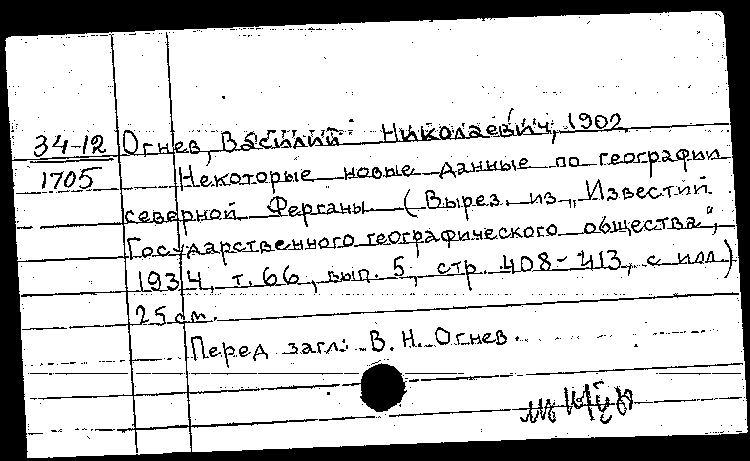 34-12 Огнев, Василий Николаевич, 1902
1705 Некоторые новые данные по географии
северной Ферганы (Вырез. из „Известий
Государственного географического общества",
1934, т. 66, вып. 5, стр. 408-413, с илл.)
25 см.
Перед загл.: В. Н. Огнев.